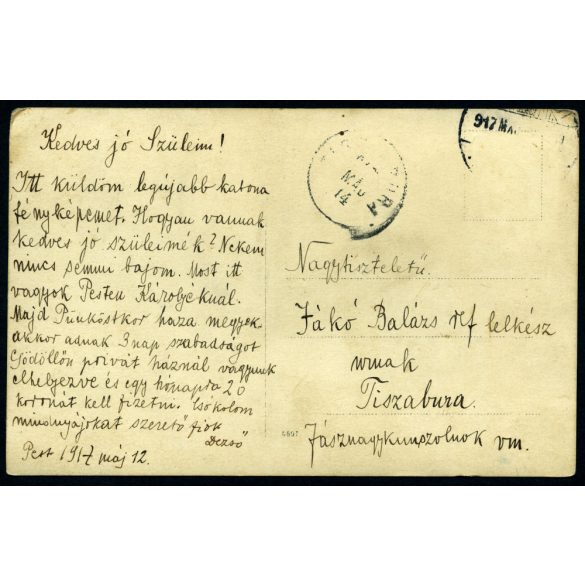 Kedves jó Szüleim!
Itt küldöm legújabb katona
fényképemet. Hogyan vannak
kedves jó szüleimék? Nekem
nincs semmi bajom. Most itt
vagyok Pesten Károlyéknál.
Majd Pünköstkor haza megyek
akkor adnak 3 nap szabadságot
Gödöllőn privát háznál vagyunk
elhelyezve és egy hónapra 20
koronát kell fizetni. Csókolom
mindnyájokat szerető fiok
Dezső
Pest 1917 máj 12.
917 MÁ
BURA
MÁJ
14
Nagytiszteletű
Fákó Balázs ref lelkész
urnak
Tiszabura.
Jásznagykunszolnok vm.